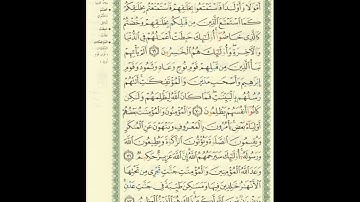 أَمْوَٰلًا وَأَوْلَٰدًا فَٱسْتَمْتَعُوا۟ بِخَلَٰقِهِمْ فَٱسْتَمْتَعْتُم بِخَلَٰقِكُمْ
كَمَا ٱسْتَمْتَعَ ٱلَّذِينَ مِن قَبْلِكُم بِخَلَٰقِهِمْ وَخُضْتُمْ
كَٱلَّذِى خَاضُوٓا۟ أُو۟لَٰٓئِكَ حَبِطَتْ أَعْمَٰلُهُمْ فِى ٱلدُّنْيَا
وَٱلْءَاخِرَةِ وَأُو۟لَٰٓئِكَ هُمُ ٱلْخَٰسِرُونَ ٦٩ أَلَمْ يَأْتِهِمْ
نَبَأُ ٱلَّذِينَ مِن قَبْلِهِمْ قَوْمِ نُوحٍ وَعَادٍ وَثَمُودَ وَقَوْمِ
إِبْرَٰهِيمَ وَأَصْحَٰبِ مَدْيَنَ وَٱلْمُؤْتَفِكَٰتِ أَتَتْهُمْ
رُسُلُهُم بِٱلْبَيِّنَٰتِ فَمَا كَانَ ٱللَّهُ لِيَظْلِمَهُمْ وَلَٰكِن
كَانُوٓا۟ أَنفُسَهُمْ يَظْلِمُونَ ٧٠ وَٱلْمُؤْمِنُونَ وَٱلْمُؤْمِنَٰتُ بَعْضُهُمْ
أَوْلِيَآءُ بَعْضٍ يَأْمُرُونَ بِٱلْمَعْرُوفِ وَيَنْهَوْنَ عَنِ ٱلْمُنكَرِ
وَيُقِيمُونَ ٱلصَّلَوٰةَ وَيُؤْتُونَ ٱلزَّكَوٰةَ وَيُطِيعُونَ ٱللَّهَ
وَرَسُولَهُۥٓ أُو۟لَٰٓئِكَ سَيَرْحَمُهُمُ ٱللَّهُ إِنَّ ٱللَّهَ عَزِيزٌ حَكِيمٌ ٧١
وَعَدَ ٱللَّهُ ٱلْمُؤْمِنِينَ وَٱلْمُؤْمِنَٰتِ جَنَّٰتٍ تَجْرِى مِن تَحْتِهَا
ٱلْأَنْهَٰرُ خَٰلِدِينَ فِيهَا وَمَسَٰكِنَ طَيِّبَةً فِى جَنَّٰتِ عَدْنٍ